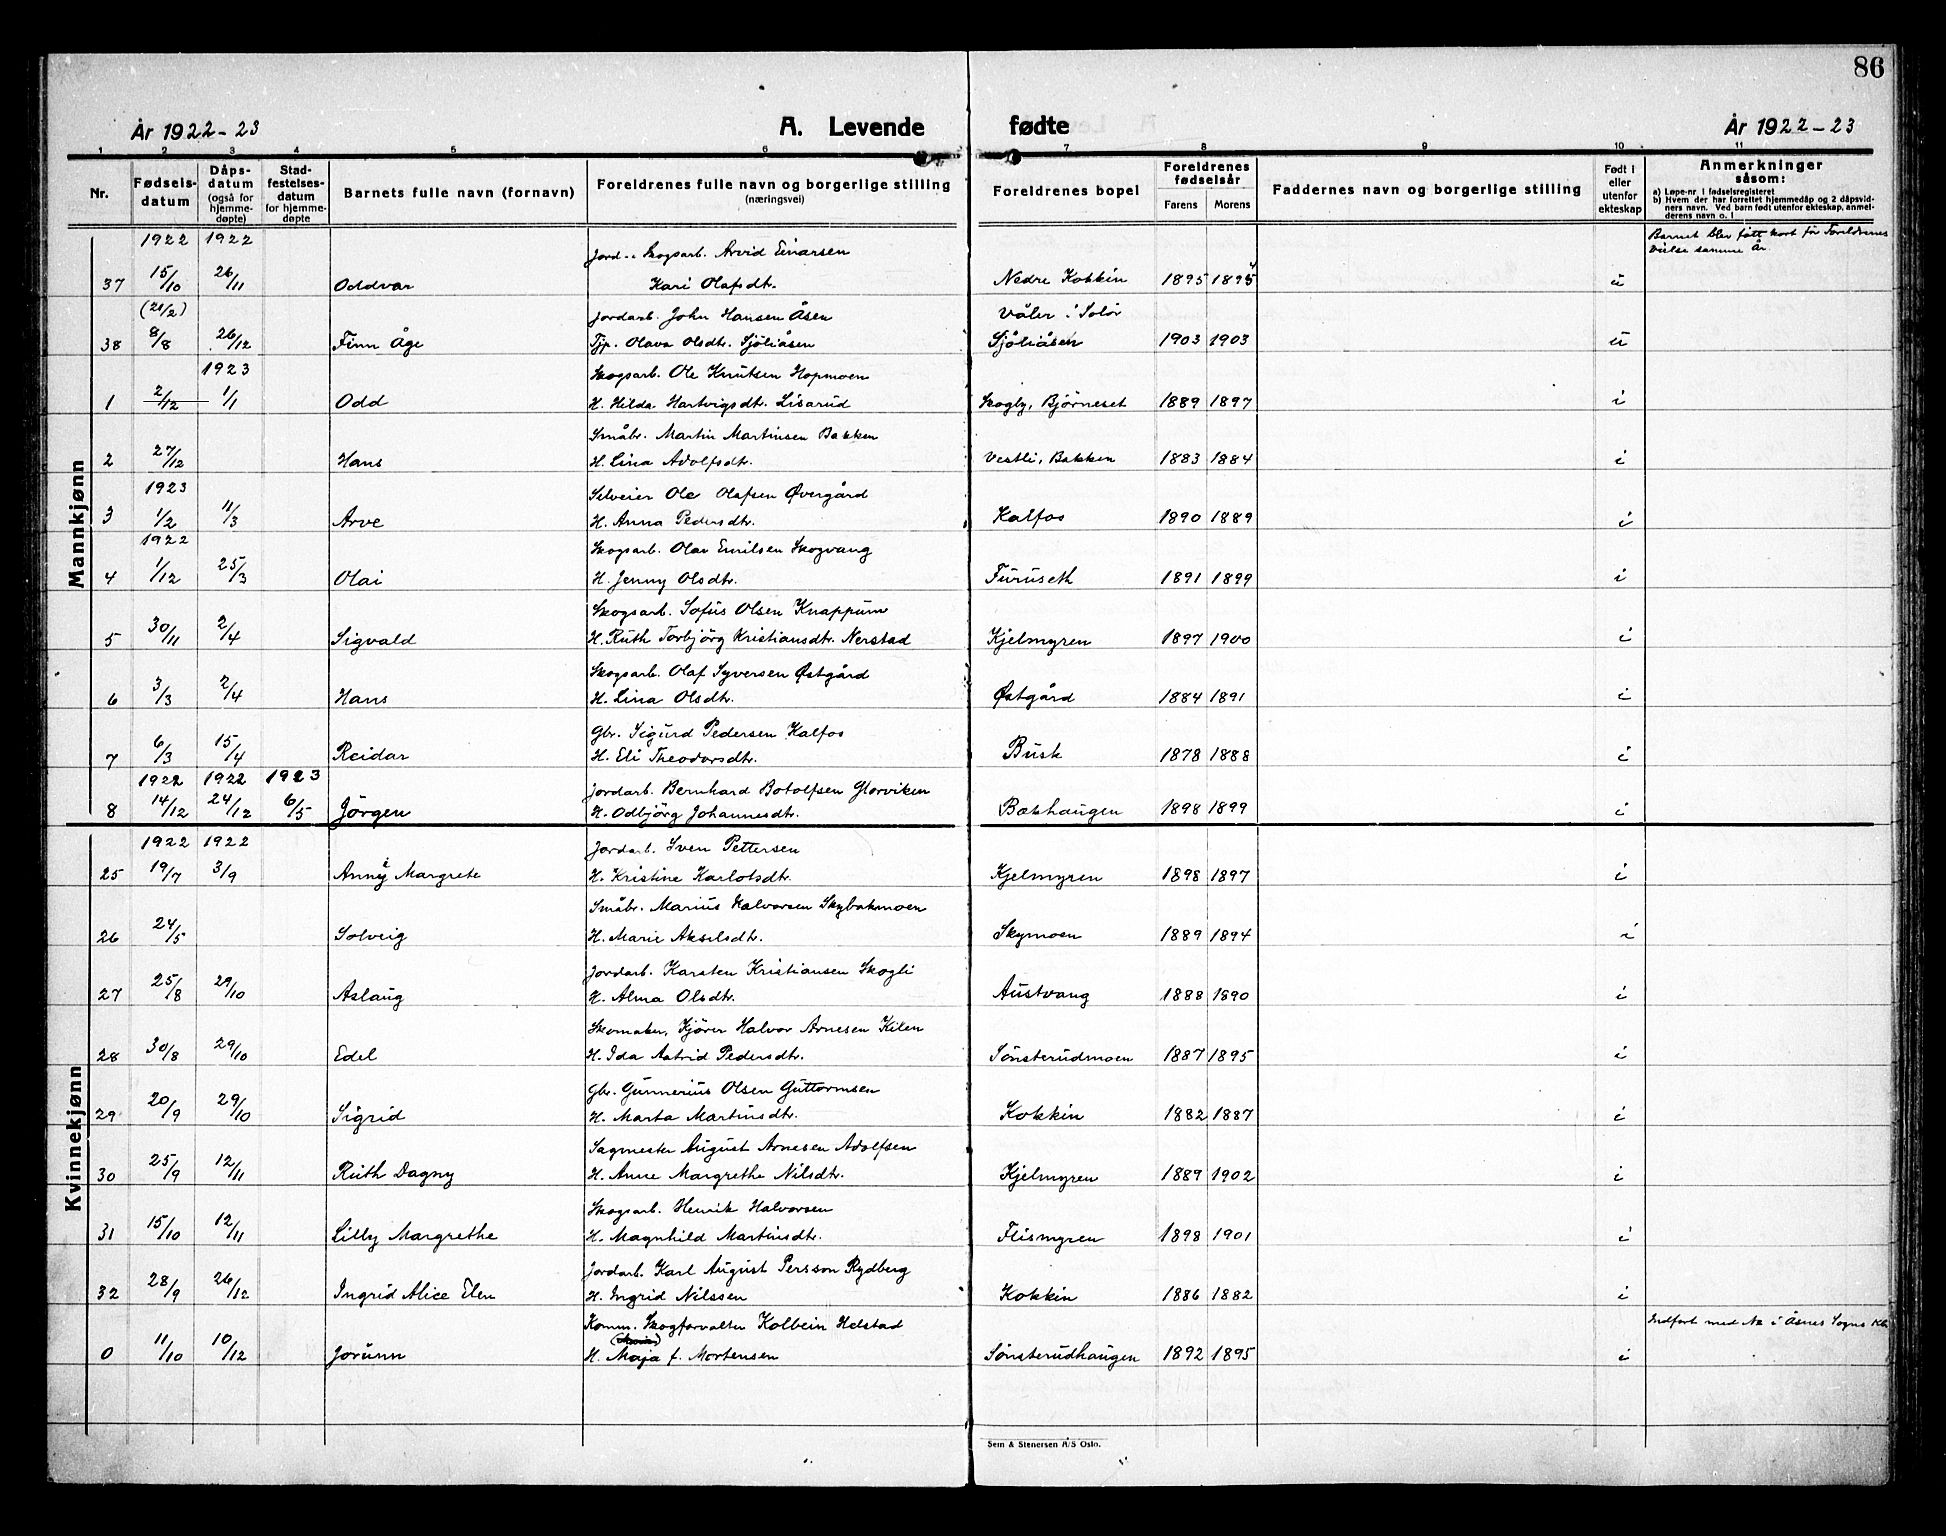 86
År 1922-23 A. Levende fødte År 1922-23
1 2 3 4 5 6 7 8 9 10 11
Nr. Fødselsdatum Dåpsdatum (også for hjemmedøpte) Stadfestelsesdatum for hjemmedøpte Barnets fulle navn (fornavn) Foreldrenes fulle navn og borgerlige stilling (næringsvei) Foreldrenes bopel Foreldrenes fødselsår Farens Morens Faddernes navn og borgerlige stilling Født i eller utenfor ekteskap Anmerkninger såsom: a) Løpe-nr i fødselsregisteret b) Hvem der har forrettet hjemmedåp og 2 dåpsvidners navn. Ved barn født utenfor ekteskap, anmelderens navn o. l
Mannkjønn
1922 1922 Jord- Skogsarb. Arvid Einarsen Barnet blev født kort før Foreldrenes vielse samme år
37 15/10 26/11 Oddvar Kari Olafsdtr. Nedre Kokkin 1895 1895 4 u
(21/2) Jordarb. John Hansen Åsen Våler i Solør
38 8/8 26/12 Finn Åge Tjp. Olava Olsdtr. Sjöliåsen Sjöliåsen 1903 1903 u
1923 Skogsarb. Ole Knutsen Hopmoen
1 2/12 1/1 Odd H. Hilda Hartvigsdtr. Lisarud Skogly, Björneset 1889 1897 i
Småbr. Martin Martinsen Bakken
2 27/12 Hans H. Lina Adolfsdtr. Vestli, Bakken 1883 1884 i
1923 Selveier Ole Olafsen Øvergård
3 1/2 11/3 Arve H. Anna Pedersdtr. Kalfos 1890 1889 i
1922 Skogsarb. Olav Emilsen Skogvang
4 1/12 25/3 Olai H. Jenny Olsdtr. Furuseth 1891 1899 i
Skogsarb. Sofus Olsen Knappum
5 30/11 2/4 Sigvald H. Ruth Torbjörg Kristiansdtr. Nerstad Kjelmyren 1897 1900 i
Skogsarb. Olaf Syversen Østgård
6 3/3 2/4 Hans H. Lina Olsdtr. Østgård 1884 1891 i
Gbr. Sigurd Pedersen Kalfos
7 6/3 15/4 Reidar H. Eli Theodorsdtr. Busk 1878 1888 i
1922 1922 1923 Jordarb. Bernhard Botolfsen Glorviken
8 14/12 24/12 6/5 Jörgen H. Odbjörg Johannesdtr. Bakhaugen 1898 1899 i
Kvinnekjønn
1922 1922 Jordarb. Sven Pettersen
25 19/7 3/9 Anny Margrete H. Kristine Karlotsdtr. Kjelmyren 1898 1897 i
Småbr. Marius Halvorsen Skybakmoen
26 24/5 Solveig H. Marie Akselsdtr. Skymoen 1889 1894 i
Jordarb. Karsten Kristiansen Skogli
27 25/8 29/10 Aslaug H. Alma Olsdtr. Austvang 1888 1890 i
Skomaker, Kjörer Halvor Arnesen Kilen
28 30/8 29/10 Edel H. Ida Astrid Pedersdtr. Sönsterudmoen 1887 1895 i
Gbr. Gunnerius Olsen Guttormsen
29 20/9 29/10 Sigrid H. Marta Martinsdtr. Kokkin 1882 1887 i
Sagmester August Arnesen Adolfsen
30 25/9 12/11 Ruth Dagny H. Anne Margrethe Nilsdtr. Kjelmyren 1889 1902 i
Skogsarb. Henrik Halvorsen
31 15/10 12/11 Lilly Margrethe H. Magnhild Martinsdtr. Flismyren 1898 1901 i
Jordarb. Karl August Persson Rydberg
32 28/9 26/12 Ingrid Alice Elen H. Ingrid Nilssen Kokkin 1886 1882 i
Komm. Skogforvalter Kolbein Helstad Indført med No i Åsnes Sogns Kb.
0 11/10 10/12 Jorunn H. Maja f. Mortensen Sönsterudhaugen 1892 1895 i
Sem & Stenersen A/S Oslo.